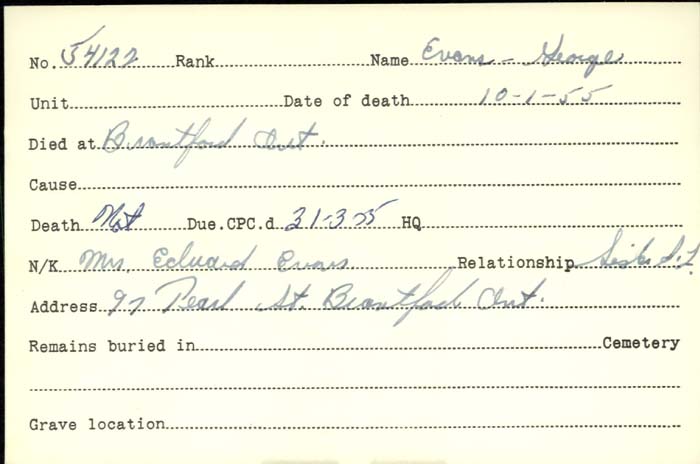 No. 54122 Rank Name Evans - George
Unit Date of death 10-1-55
Died at Brantford Ont.
Cause
Death Not Due.CPC.d 31-3-55 HQ
N/K Mrs. Edward Evans Relationship Sister I.L.
Address 97 Pearl St. Brantford Ont.
Remains buried in Cemetery
Grave location